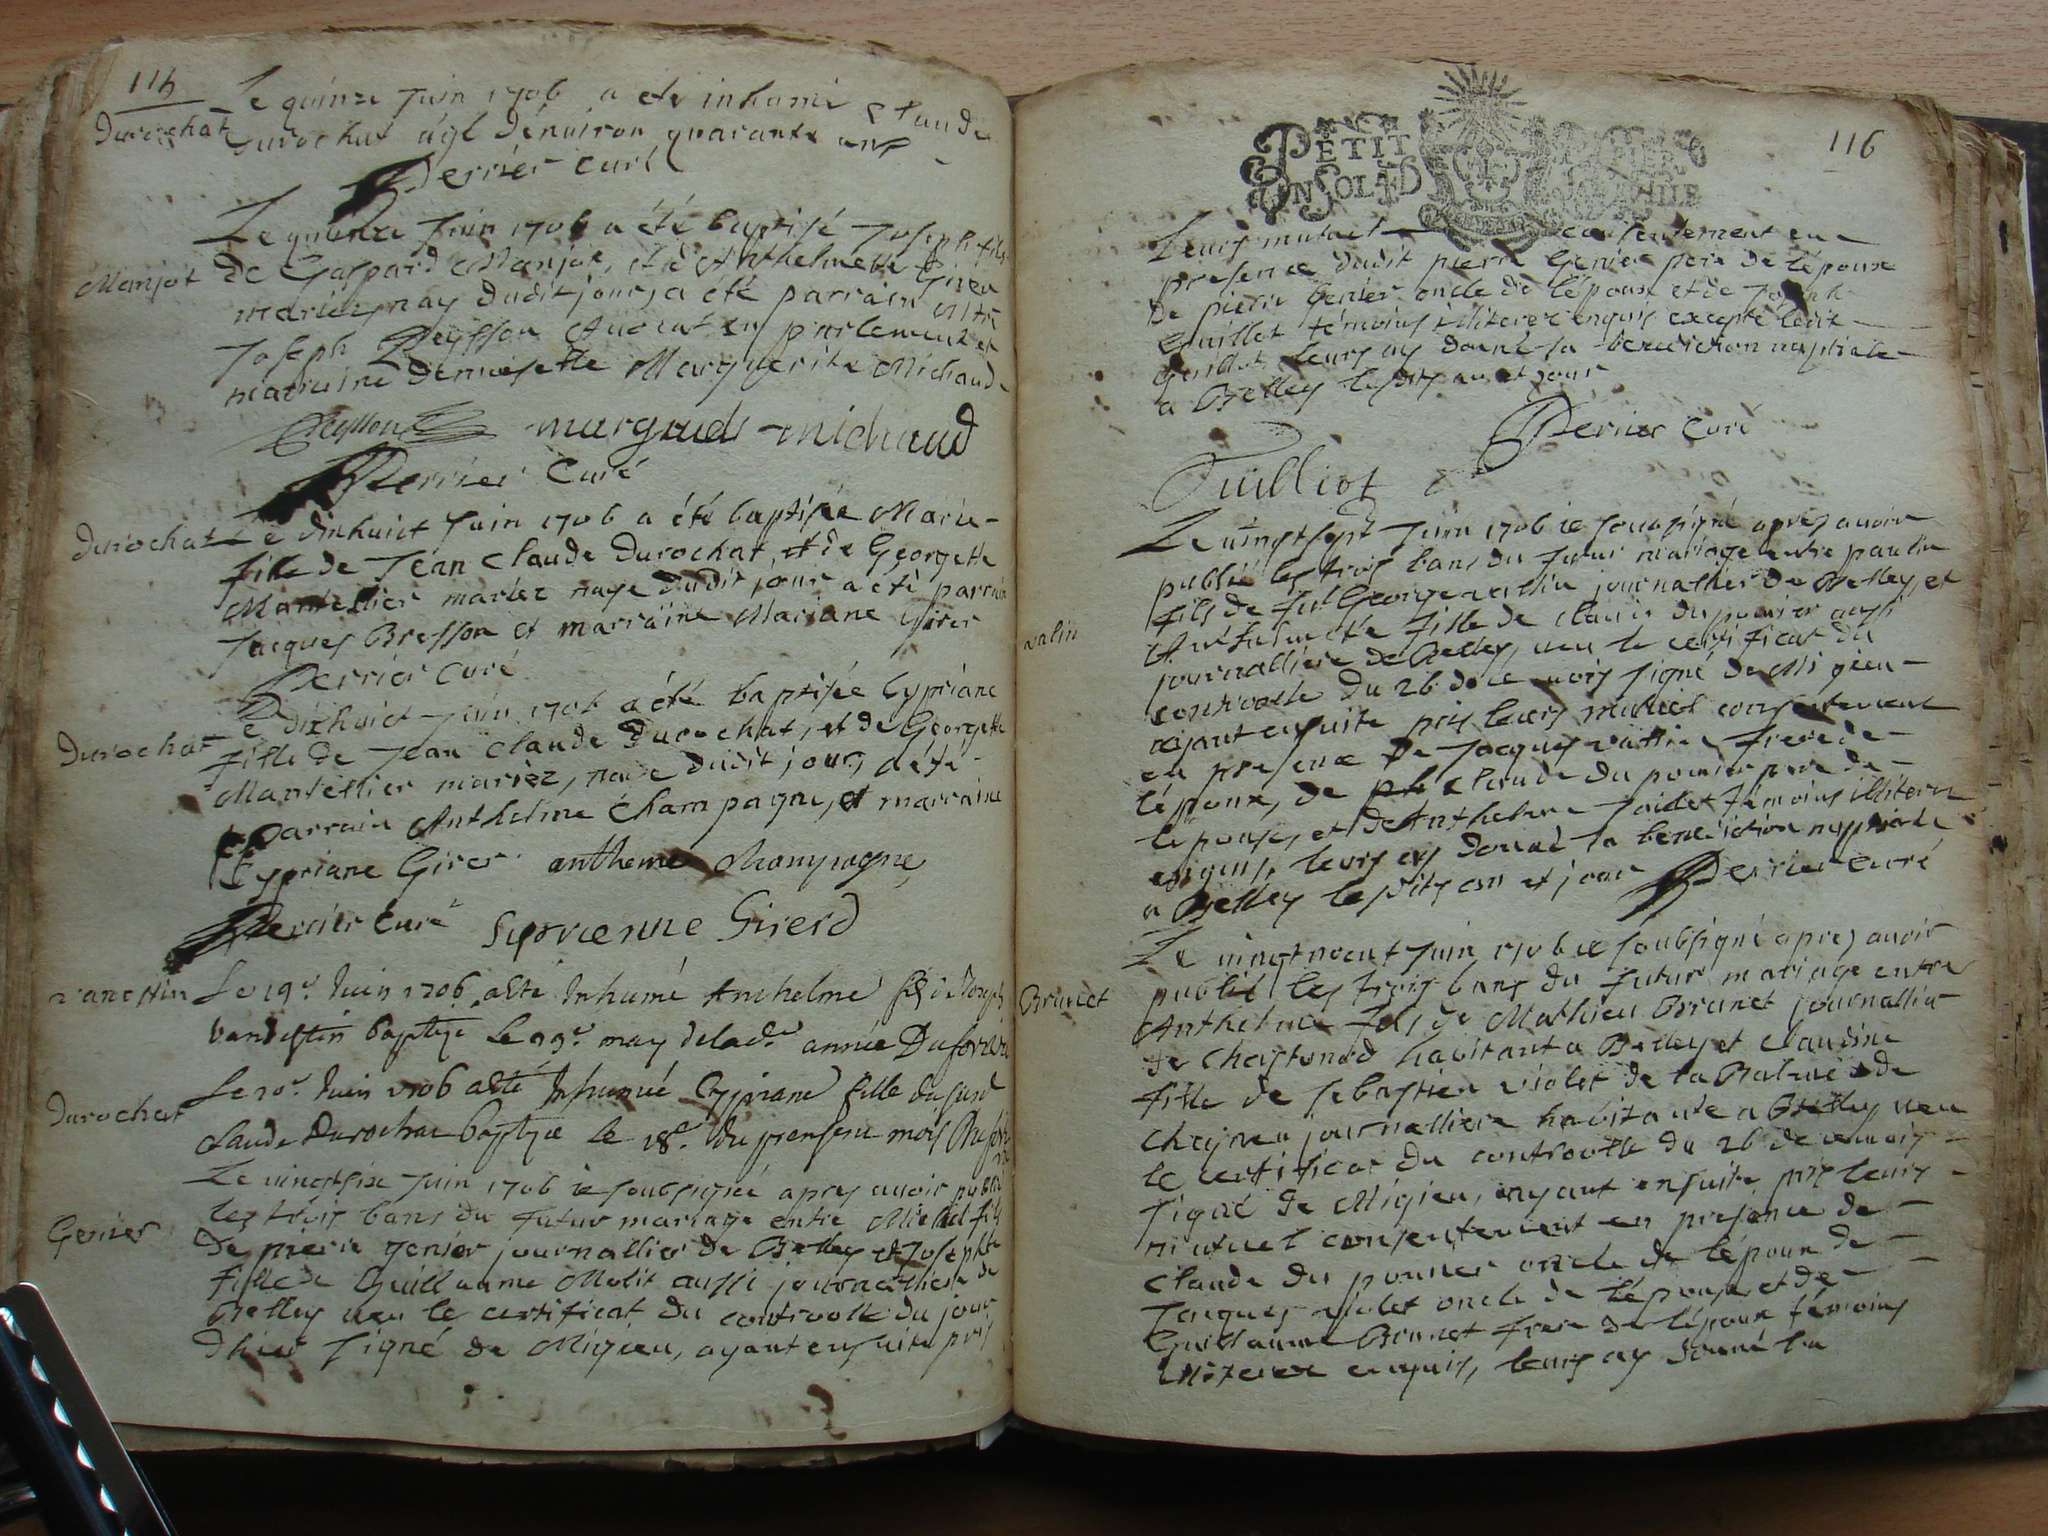 115
Durochat
Le quinze Juin 1706 a eté inhumé Claude
Durochat agé dénuiron quarante ans
Perrier curé
Manjot
Le quinze Juin 1706 a été baptisé Joseph fils
de Gaspard Manjot, et d'Anthelmette
mariez, nay dudit jour, a été parrain
Joseph Peysson Auocat en parlement et
marraine demoiselle Marguerite Michaud
Peysson margueds michaud
Perrier Curé
Durochat
Le dixhuict Juin 1706 a été baptisée Marie
fille de Jéan Claude Durochat, et de Georgette
Mantellier mariez naye dudit jour a été parrain
Jacques Bresson et marraine Mariane Girer
Perrier curé
Durochat
Le dixhuict Juin 1706 a été baptisée Cypriane
fille de Jean Claude Durochat, et de Georgette
Mantellier mariez, naye dudit jour, a été
parrain Anthelme Champagne, et marraine
Cypriane Girer antheme Champagne
Perrier Curé Siprienne Girerd
Le 19e Juin 1706 a esté Inhumé Anthelme fils de Joseph
baptize le 29e may de lad.e année
Durochat
Le 20e Juin 1706 a esté Inhumée Cypriane fille du susd
Claude Durochat baptize le 18e du present mois
Genier
Le uingtsix Juin 1706 ie soubsigné apres auoir publié
les trois bans du futur mariage entre Michel fils
de pierre genier journallier de Belley et Josephte
fille de Guillaume Molit aussi journalliere de
Belley ueu le certificat du controolle du jour
dhier signé de Migieu, ayant ensuite pris
PETIT PAPIER
UN SOL 4 D LA FEUILLE
116
Leurs mutuel consentement en
presence dudit pierre Genier pere de lépoux
de pierre Genier oncle de lépoux et de Joseph
Guillot témoins illiterez enquis excepté ledit
Guillot, leurs ay donné la benediction nuptiale
a Belley lesdits an et jour
Perrier Curé
Guilliot
valin
Le uingtsept Juin 1706 ie soussigné apres auoir
publié les trois bans du futur mariage entre paulin
fils de fut George vallin journallier de Belley, et
Anthelmette fille de claude du pomier aussi
journalliere de Belley, ueu le certificat du
controolle du 26 de ce mois signé de Migieu
ayant ensuite pris leurs mutuel consentement
en presence de Jacques vallin frere de
lépoux, de claude du pomier pere de
lepouse, et de Anthelme témoins illiterez
enquis, leurs ay donné la benediction nuptiale
a Belley lesdits an et jour Perrier curé
Brunet
Le uingtneuf Juin 1706 ie soubsigné apres auoir
publié les trois bans du futur mariage entre
Anthelme fils de Mathieu Brunet journallier
de Chastonod habitant a Belley et Claudine
fille de sebastien violet de la Balme de
journalliere habitante a Belley ueu
le certificat du controolle du 26 de ce mois
signé de Migieu, ayant ensuite pris leurs
mutuel consentement en presence de
Claude du pomier oncle de lépoux de
Jacques violet oncle de lépouse et de
Guillaume Brunet frere de lépoux témoins
illiterez enquis, leurs ay donné la